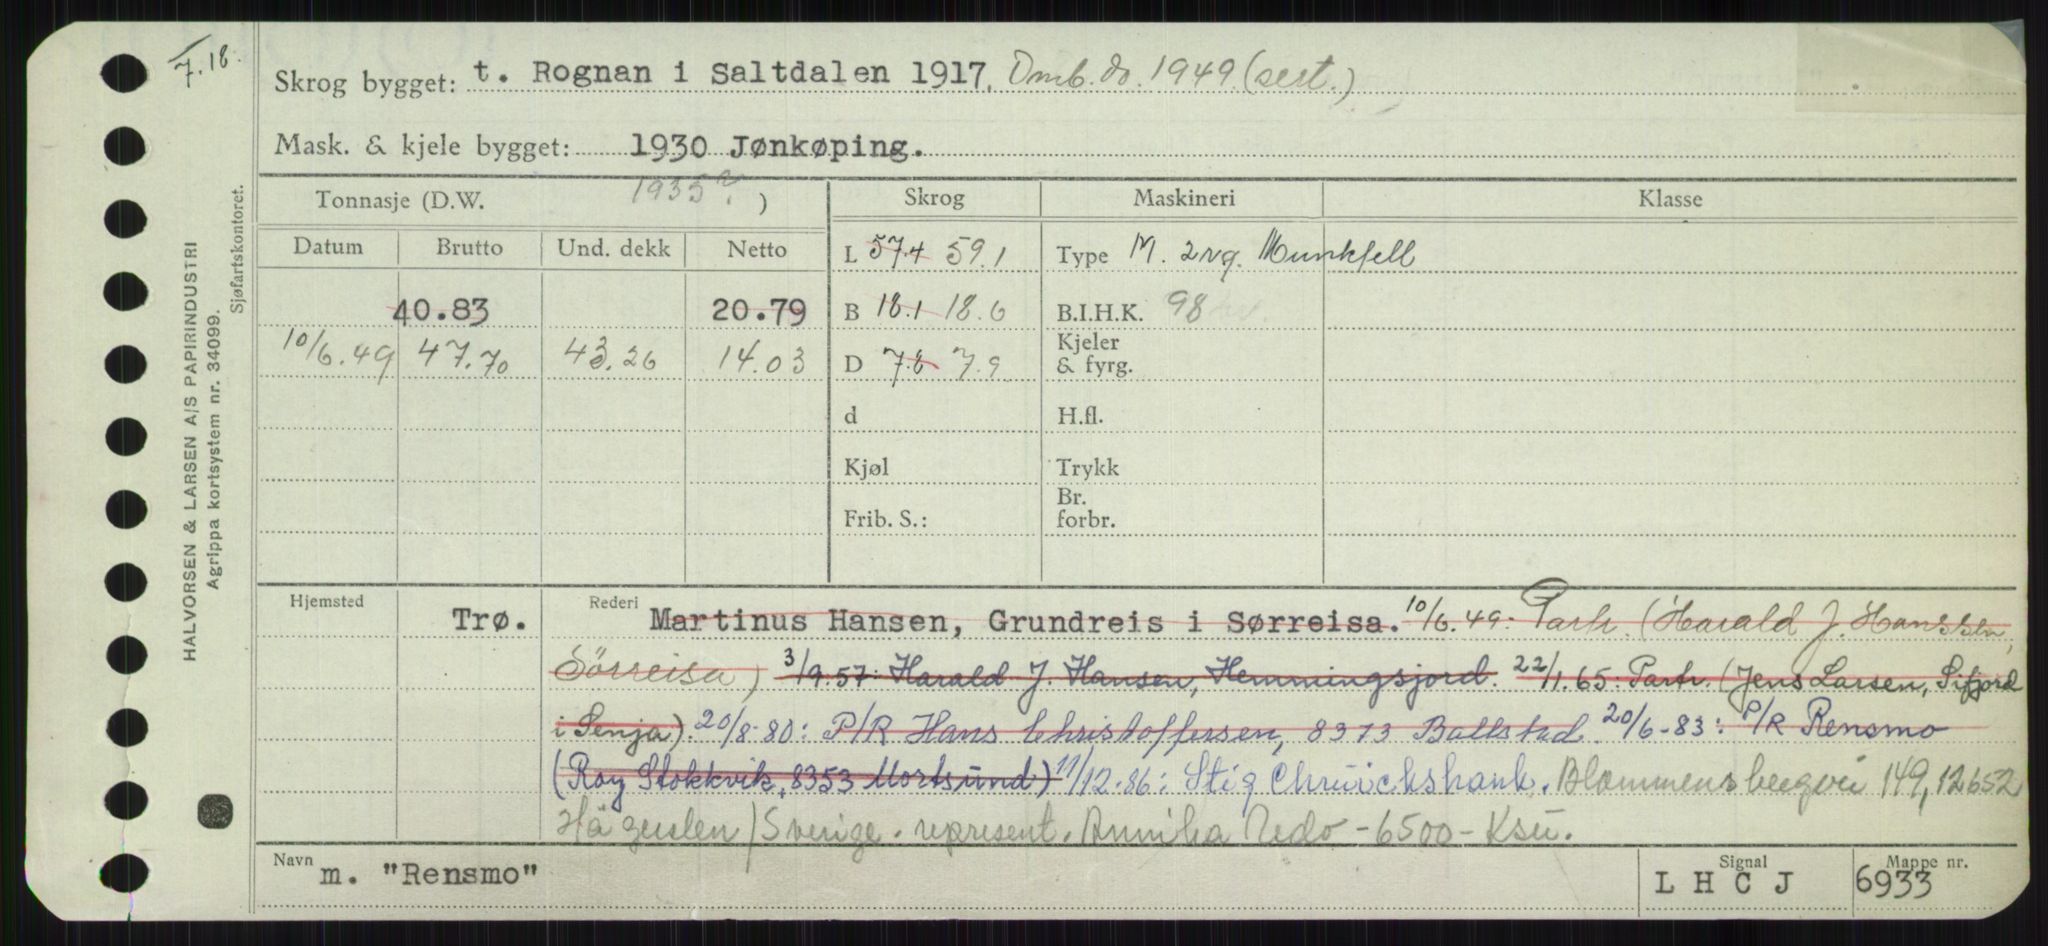 7.18.
Skrog bygget: t. Rognan i Saltdalen 1917. Omb. do. 1949 (sert.)
Mask. & kjele bygget: 1930 Jønkøping.
Tonnasje (D.W. 1935?)
Skrog
Maskineri
Klasse
Datum Brutto Und. dekk Netto
L 57.4 59.1
Type M. 2 syl. Munktell
40.83 20.79
B 18.1 18.6
B.I.H.K. 98
10/6.49 47.70 43.26 14.03
D 7.8 7.9
Kjeler
& fyrg.
d
H.fl.
Kjøl
Trykk
Frib. S.:
Br.
forbr.
Hjemsted Trø. Rederi Martinus Hansen, Grundreis i Sørreisa. 10/6.49: Partr. (Harald J. Hanssen,
Sørreisa) 3/9.57: Harald J. Hansen, Hemmingsjord. 22/1.65: Partr. (Jens Larsen, Sifjord
i Senja). 20/8-80: P/R Hans Christoffersen, 8373 Ballstad. 20/6-83: P/R Rensmo
(Roy Stokkvik, 8353 Mortsund) 11/12-86: Stig 149, 12652
/Sverige. represent. Annika - 6500 - Ksu.
Navn m. "Rensmo"
Signal L H C J
Mappe nr. 6933
HALVORSEN & LARSEN A/S PAPIRINDUSTRI
Agrippa kortsystem nr. 34099.
Sjøfartskontoret.